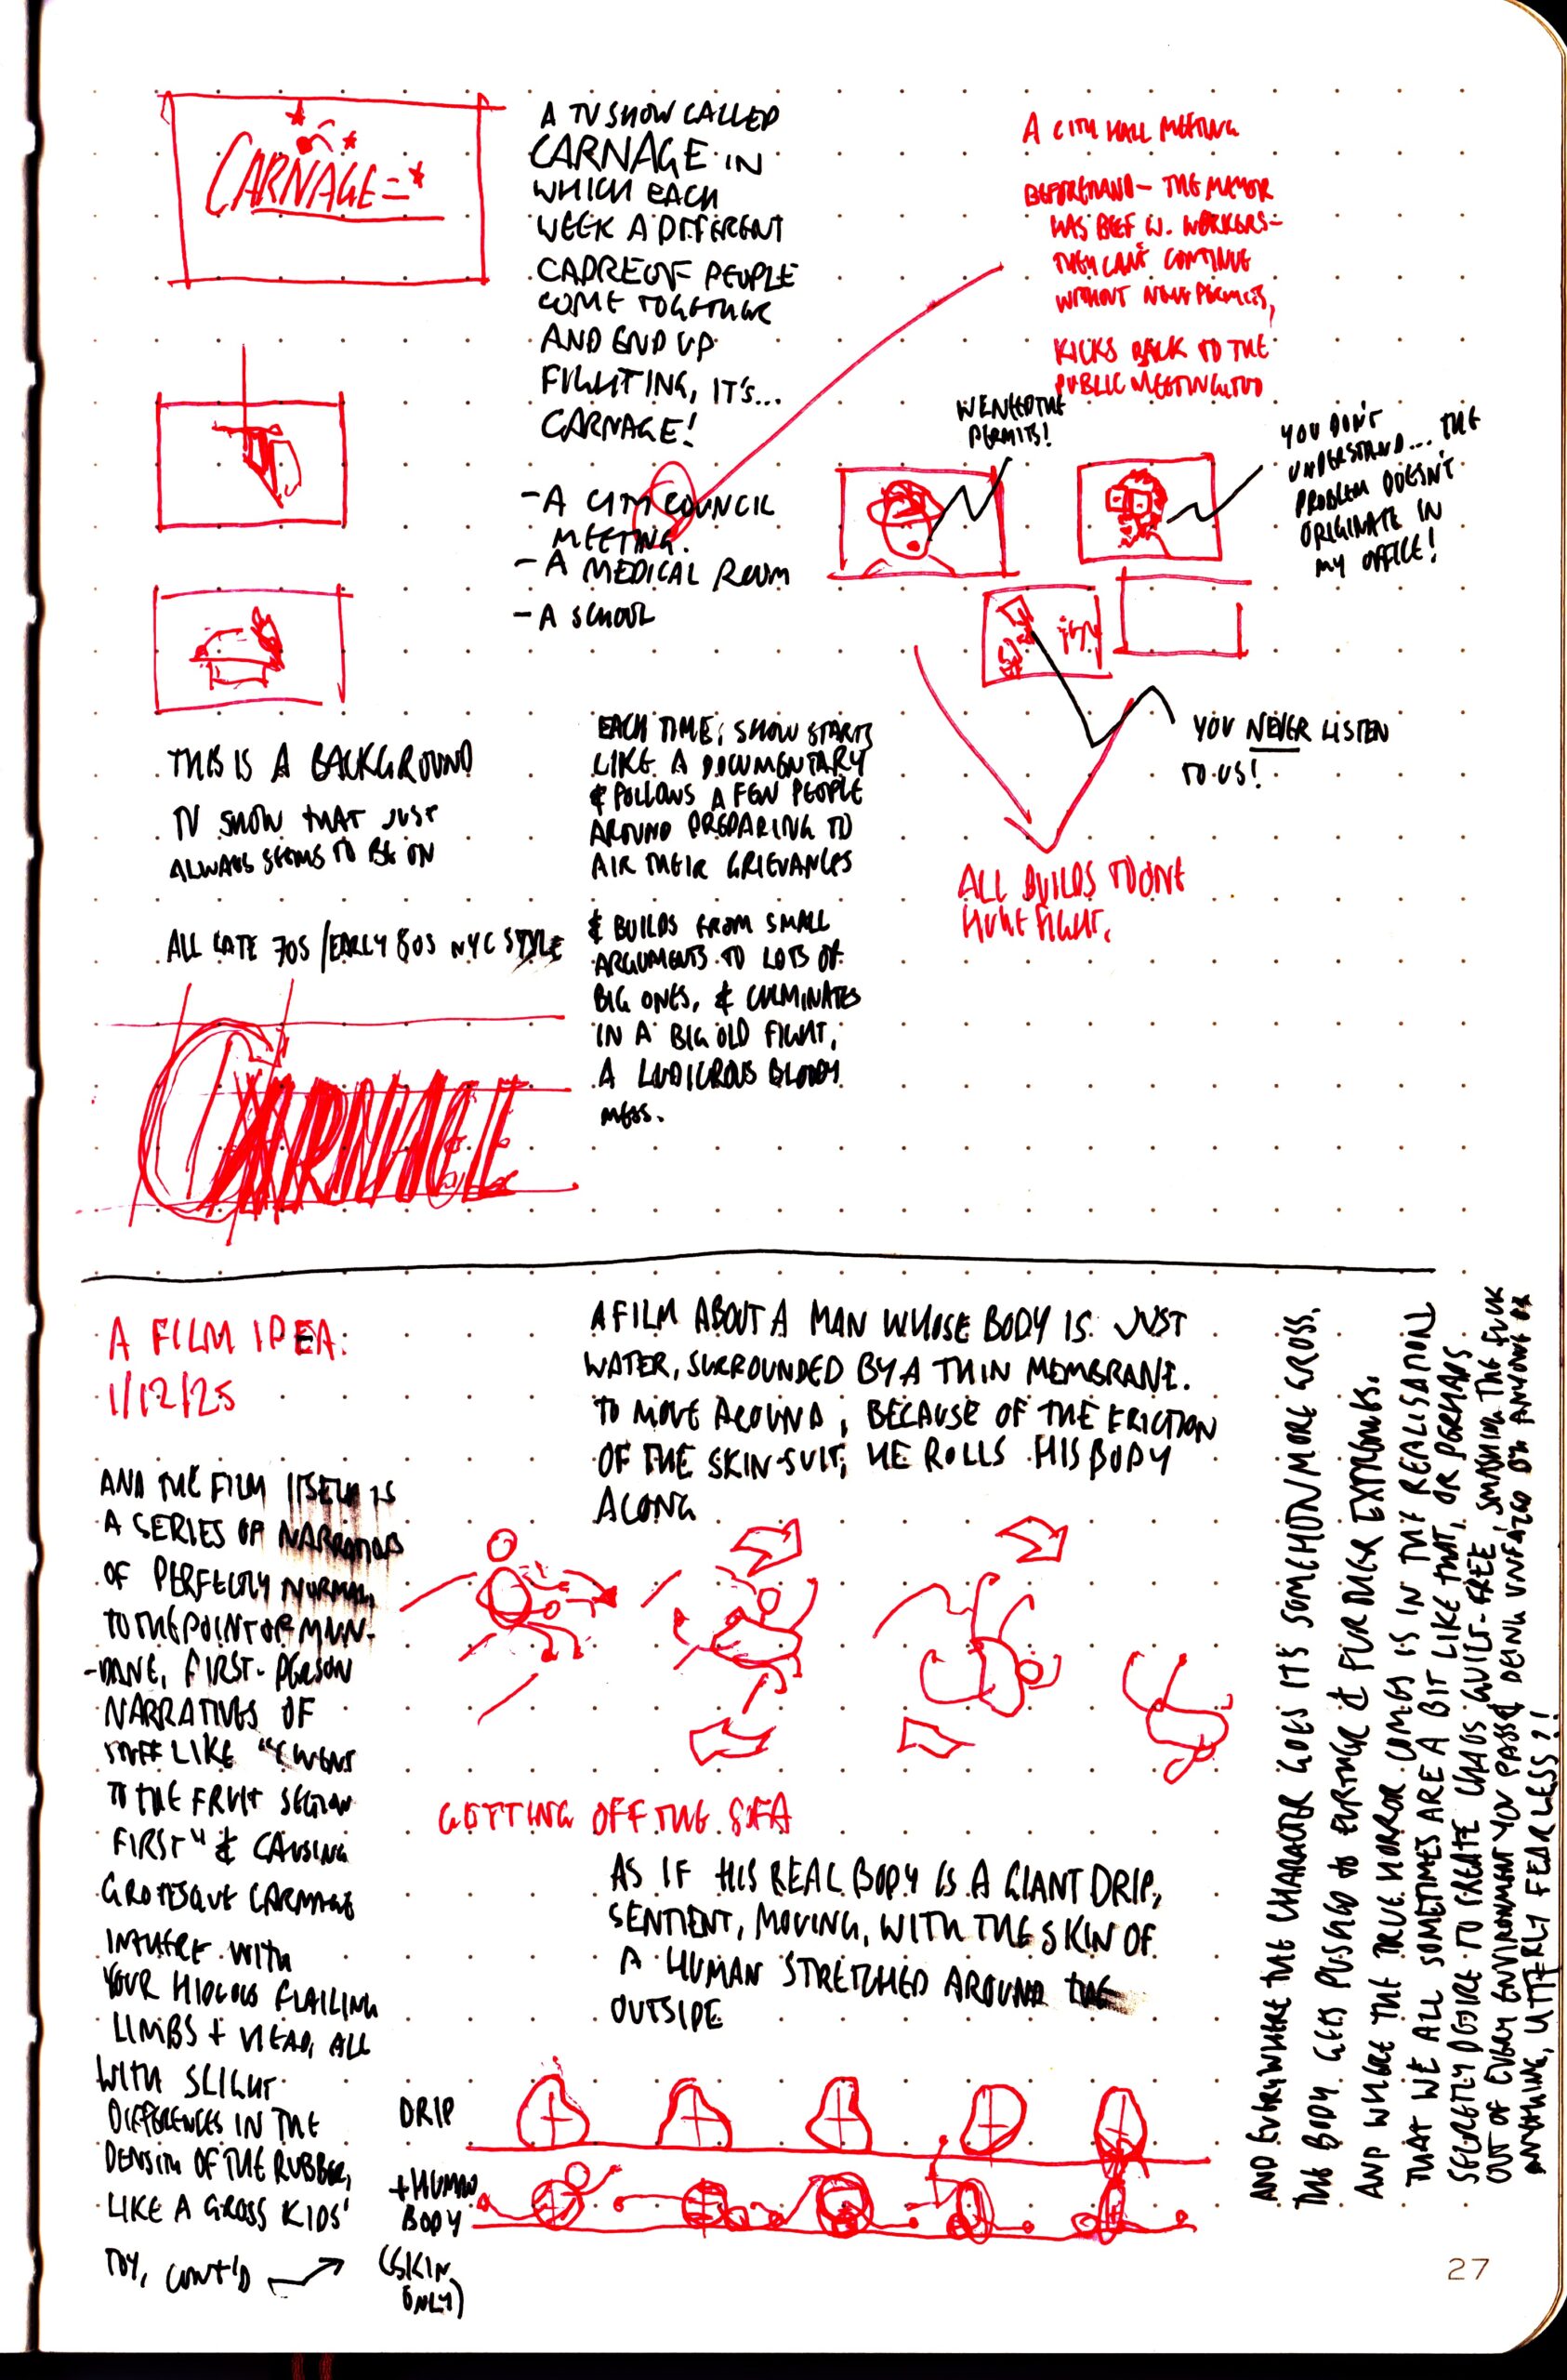 CARNAGE
A TV SHOW CALLED
CARNAGE IN
WHICH EACH
WEEK A DIFFERENT
CADRE OF PEOPLE
COME TOGETHER
AND END UP
FIGHTING, IT'S...
CARNAGE!
- A CITY COUNCIL
MEETING.
- A MEDICAL ROOM
- A SCHOOL
A CITY HALL MEETING
BEFOREHAND - THE MAYOR
HAS BEEF W. WORKERS -
THEY CAN'T CONTINUE
WITHOUT NEW PERMITS,
KICKS BACK TO THE
PUBLIC MEETING
WE NEED THE
PERMITS!
YOU DON'T
UNDERSTAND... THE
PROBLEM DOESN'T
ORIGINATE IN
MY OFFICE!
YOU NEVER LISTEN
TO US!
ALL BUILDS TO ONE
HUGE FIGHT.
THIS IS A BACKGROUND
TV SHOW THAT JUST
ALWAYS SEEMS TO BE ON
ALL LATE 70S/EARLY 80S NYC STYLE
EACH TIME, SHOW STARTS
LIKE A DOCUMENTARY
& FOLLOWS A FEW PEOPLE
AROUND PREPARING TO
AIR THEIR GRIEVANCES
& BUILDS FROM SMALL
ARGUMENTS TO LOTS OF
BIG ONES, & CULMINATES
IN A BIG OLD FIGHT,
A LUDICROUS BLOODY
MESS.
CARNAGE
A FILM IDEA:
1/12/25
A FILM ABOUT A MAN WHOSE BODY IS JUST
WATER, SURROUNDED BY A THIN MEMBRANE.
TO MOVE AROUND, BECAUSE OF THE FRICTION
OF THE SKIN-SUIT, HE ROLLS HIS BODY
ALONG
GETTING OFF THE SOFA
AS IF HIS REAL BODY IS A GIANT DRIP,
SENTIENT, MOVING, WITH THE SKIN OF
A HUMAN STRETCHED AROUND THE
OUTSIDE
DRIP
+ HUMAN
BODY
(SKIN
ONLY)
AND THE FILM ITSELF IS
A SERIES OF NARRATIONS
OF PERFECTLY NORMAL,
TO THE POINT OF MUN-
-DANE, FIRST-PERSON
NARRATIVES OF
STUFF LIKE "I WENT
TO THE FRUIT SECTION
FIRST" & CAUSING
GROTESQUE CARNAGE
IN THERE WITH
YOUR HIDEOUS FLAILING
LIMBS + HEAD, ALL
WITH SLIGHT
DIFFERENCES IN THE
DENSITY OF THE RUBBER,
LIKE A GROSS KIDS'
TOY, CONT'D
AND EVERYWHERE THE CHARACTER GOES IT'S SOMEHOW MORE GROSS.
THE BODY GETS PUSHED TO FURTHER & FURTHER EXTREMES.
AND WHERE THE TRUE HORROR COMES IS IN THE REALISATION
THAT WE ALL SOMETIMES ARE A BIT LIKE THAT, OR PERHAPS
SECRETLY DESIRE TO CREATE CHAOS GUILT-FREE, SMASHING THE FUCK
OUT OF EVERY ENVIRONMENT YOU PASS & BEING UNFAZED BY ANYONE OR
ANYTHING, UTTERLY FEARLESS?!
27